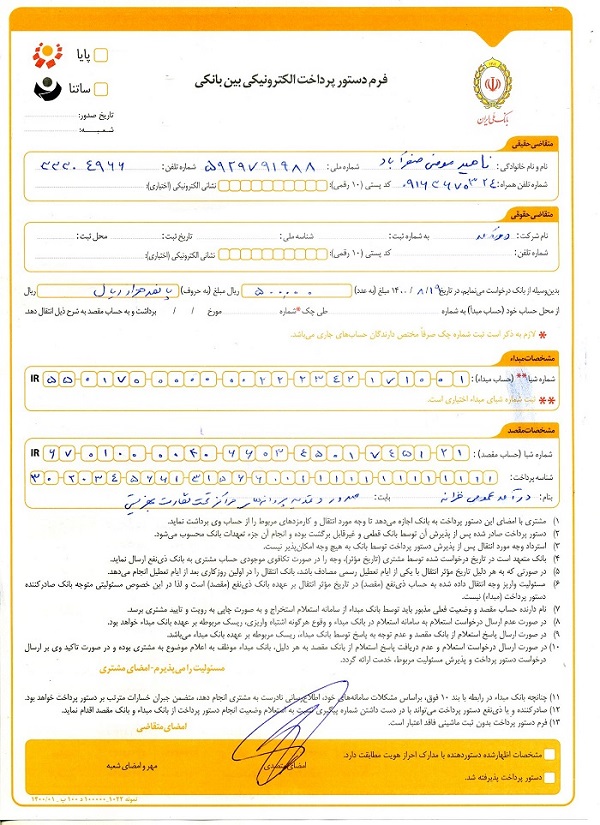 پایا
ساتنا
تاریخ صدور:
شعبه:
فرم دستور پرداخت الکترونیکی بین بانکی
بانک ملی ایران
متقاضی حقیقی
نام و نام خانوادگی: ناهید مومنی صفرآباد شماره ملی: ۵۹۲۹۷۹۱۹۸۸ شماره تلفن: ۳۳۳۰۴۹۶۶
شماره تلفن همراه: ۰۹۱۶۳۶۷۰۳۲۴ کد پستی (۱۰ رقمی): نشانی الکترونیکی (اختیاری):
متقاضی حقوقی
نام شرکت: به شماره ثبت: شناسه ملی: تاریخ ثبت: محل ثبت:
شماره تلفن: کد پستی (۱۰ رقمی): نشانی الکترونیکی (اختیاری):
بدین‌وسیله از بانک درخواست می‌نمایم، در تاریخ ۱۴۰۰/۸/۱۹ مبلغ (به عدد) ۵۰۰,۰۰۰ ریال مبلغ (به حروف) پانصد هزار ریال ریال
از محل حساب خود (حساب مبدأ) به شماره طی چک *شماره مورخ / / برداشت و به حساب مقصد به شرح ذیل انتقال دهد.
* لازم به ذکر است ثبت شماره چک صرفاً مختص دارندگان حساب‌های جاری می‌باشد.
مشخصات مبداء
شماره شبا** (حساب مبداء): IR ۵۵۰۱۷۰۰۰۰۰۰۰۲۲۲۳۴۲۱۷۱۰۰۱
** ثبت شماره شبای مبداء اختیاری است.
مشخصات مقصد
شماره شبا (حساب مقصد): IR
شناسه پرداخت:
بنام: درآمد عمومی خزانه بابت: صدور و تمدید پروانه‌های مراکز تحت نظارت بهزیستی
۱) مشتری با امضای این دستور پرداخت به بانک اجازه می‌دهد تا وجه مورد انتقال و کارمزدهای مربوط را از حساب وی برداشت نماید.
۲) دستور پرداخت صادر شده پس از پذیرش آن توسط بانک قطعی و غیرقابل برگشت بوده و انجام آن جزء تعهدات بانک محسوب می‌شود.
۳) استرداد وجه مورد انتقال پس از پذیرش دستور پرداخت توسط بانک به هیچ وجه امکان‌پذیر نیست.
۴) بانک متعهد است در تاریخ درخواست شده توسط مشتری (تاریخ مؤثر)، وجه را در صورت تکافوی موجودی حساب مشتری به بانک ذی‌نفع ارسال نماید.
۵) در صورتی که به هر دلیل تاریخ مؤثر انتقال با یکی از ایام تعطیل رسمی مصادف باشد، بانک عمل انتقال را در اولین روزکاری بعد از ایام تعطیل انجام می‌دهد.
۶) مسئولیت واریز وجه انتقال داده شده به حساب ذی‌نفع (مقصد) در تاریخ مؤثر انتقال بر عهده بانک ذی‌نفع (مقصد) است و لذا در این خصوص مسئولیتی متوجه بانک صادرکننده دستور پرداخت (مبداء) نیست.
۷) نام دارنده حساب مقصد و وضعیت فعلی مذبور باید توسط بانک مبداء از سامانه استعلام استخراج و به صورت چاپی به رویت و تایید مشتری برسد.
۸) در صورت عدم ارسال درخواست استعلام به سامانه استعلام در بانک مبداء و وقوع هرگونه اشتباه واریزی، ریسک مربوطه بر عهده بانک مبداء خواهد بود.
۹) در صورت ارسال پاسخ استعلام از بانک مقصد و عدم توجه به پاسخ توسط بانک مبداء، ریسک مربوطه بر عهده بانک مبداء می‌باشد.
۱۰) در صورت ارسال درخواست استعلام و عدم دریافت پاسخ استعلام از بانک مقصد، بانک مبداء موظف به اعلام موضوع به مشتری بوده و در صورت تاکید وی بر ارسال
درخواست دستور پرداخت و پذیرش مسئولیت مربوط، خدمت ارائه گردد.
مسئولیت را می‌پذیرم-امضای مشتری
۱۱) چنانچه بانک مبداء در رابطه با بند ۱۰ فوق، براساس مشکلات سامانه‌های خود، اطلاع‌رسانی نادرست به مشتری انجام دهد، متضمن جبران خسارات مترتب بر دستور پرداخت خواهد بود.
۱۲) صادرکننده و یا ذی‌نفع دستور پرداخت می‌تواند با در دست داشتن شماره پیگیری نسبت به استعلام وضعیت انجام دستور پرداخت از بانک مبداء و بانک مقصد اقدام نماید.
۱۳) فرم دستور پرداخت بدون ثبت ماشینی فاقد اعتبار است.
امضای متقاضی
مشخصات اظهارشده دستوردهنده با مدارک احراز هویت مطابقت دارد.
دستور پرداخت پذیرفته شد.
امضای متصدی
مهر و امضای شعبه